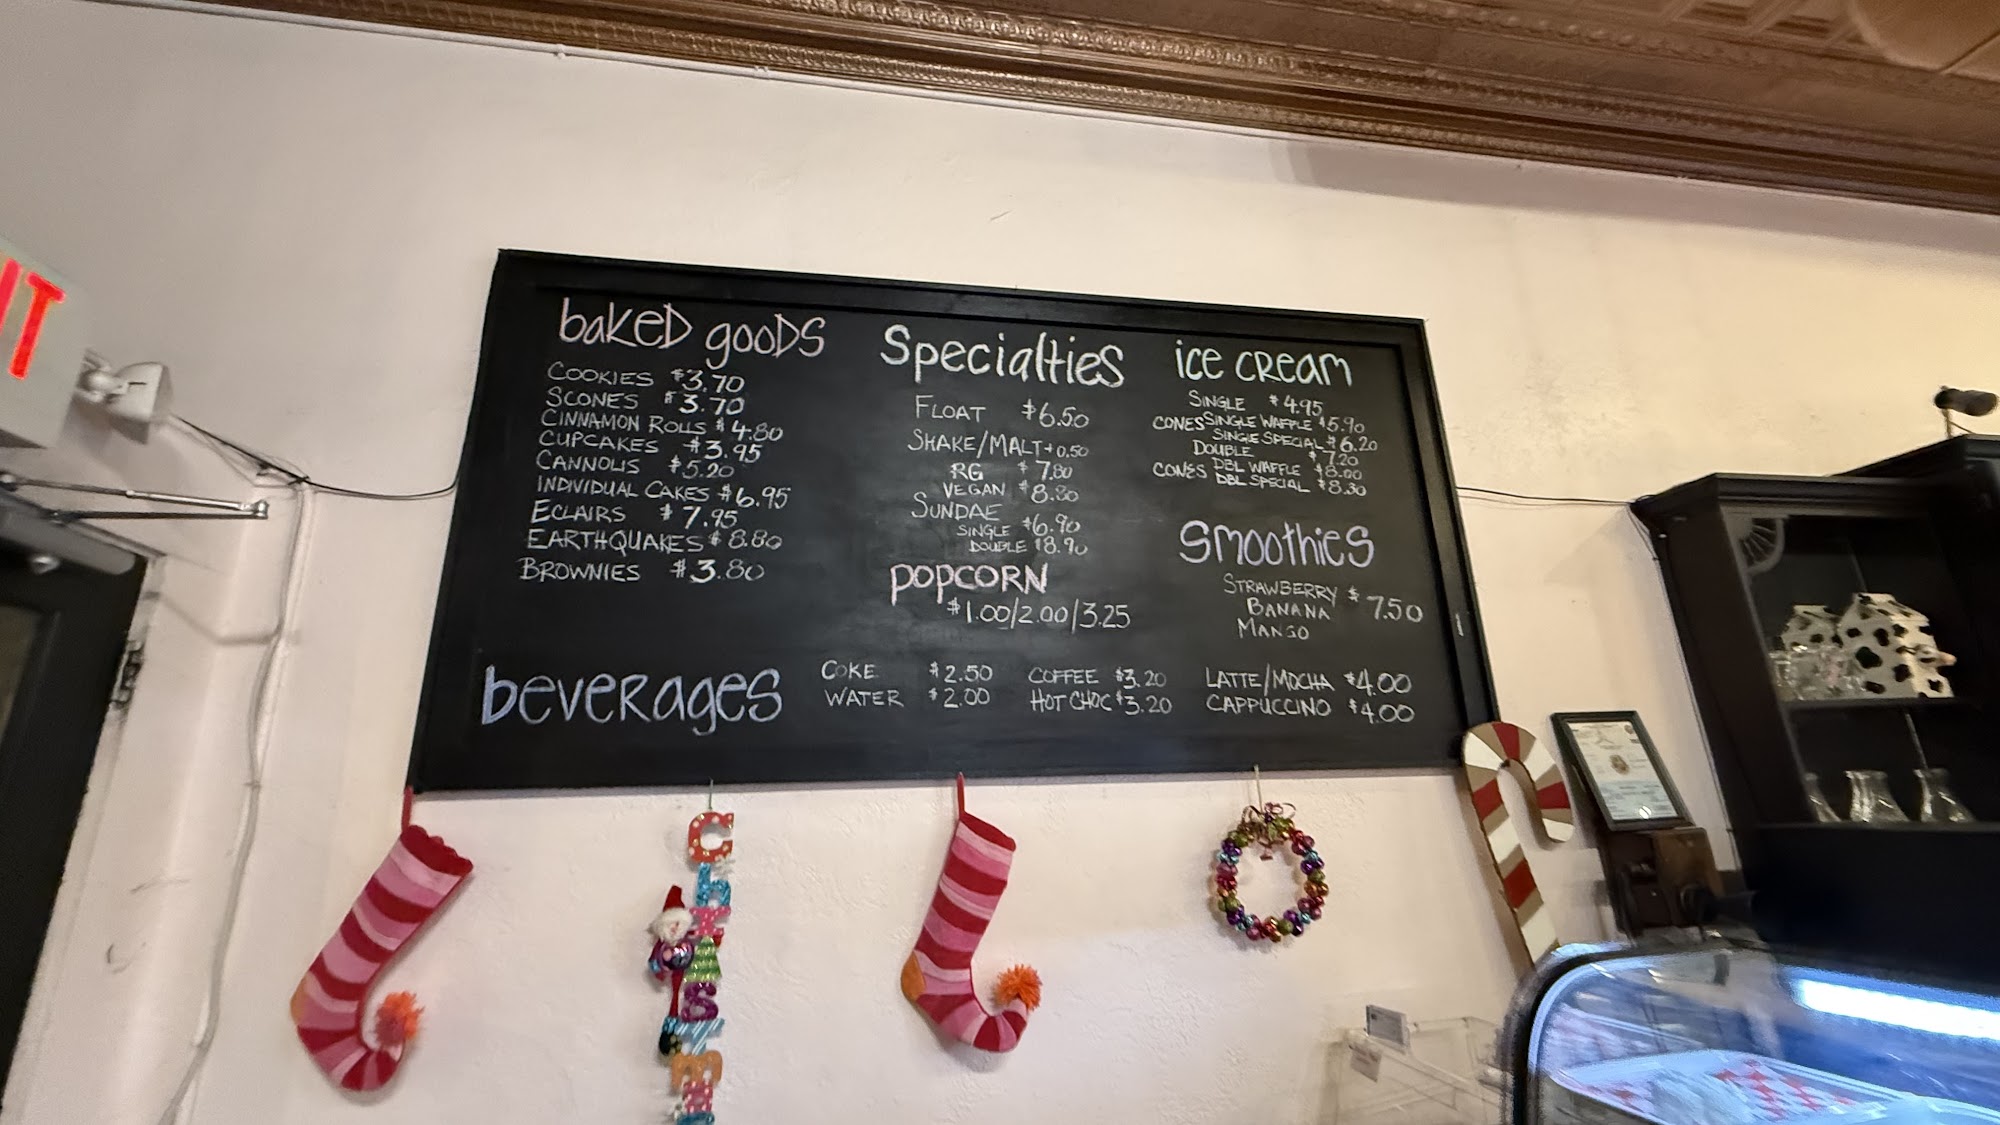 IT
baked goods
COOKIES $3.70
SCONES $3.70
CINNAMON ROLLS $4.80
CUPCAKES $3.95
CANNOLIS $5.20
INDIVIDUAL CAKES $6.95
ECLAIRS $7.95
EARTHQUAKES $8.80
BROWNIES $3.80
Specialties
FLOAT $6.50
SHAKE/MALT+0.50
RG $7.80
VEGAN $8.80
SUNDAE
SINGLE $6.90
DOUBLE $8.90
POPCORN
$1.00/2.00/3.25
ice cream
SINGLE $4.95
CONES SINGLE WAFFLE $5.90
SINGLE SPECIAL $6.20
DOUBLE $7.20
CONES DBL WAFFLE $8.00
DBL SPECIAL $8.30
Smoothies
STRAWBERRY $7.50
BANANA
MANGO
beverages
COKE $2.50
WATER $2.00
COFFEE $3.20
HOT CHOC $3.20
LATTE/MOCHA $4.00
CAPPUCCINO $4.00
ChRISTm